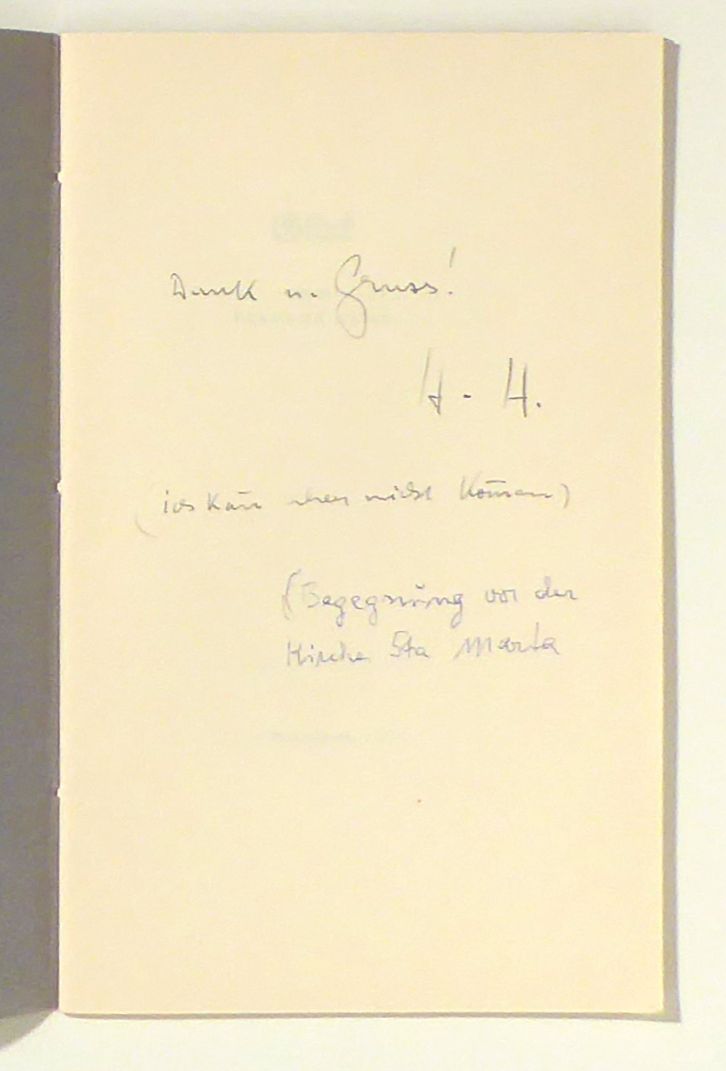 Dank u. Gruss!
H. H.
(ich kañ eben nicht kom̄en)
(Begegnung vor der
Kirche Sta Marta